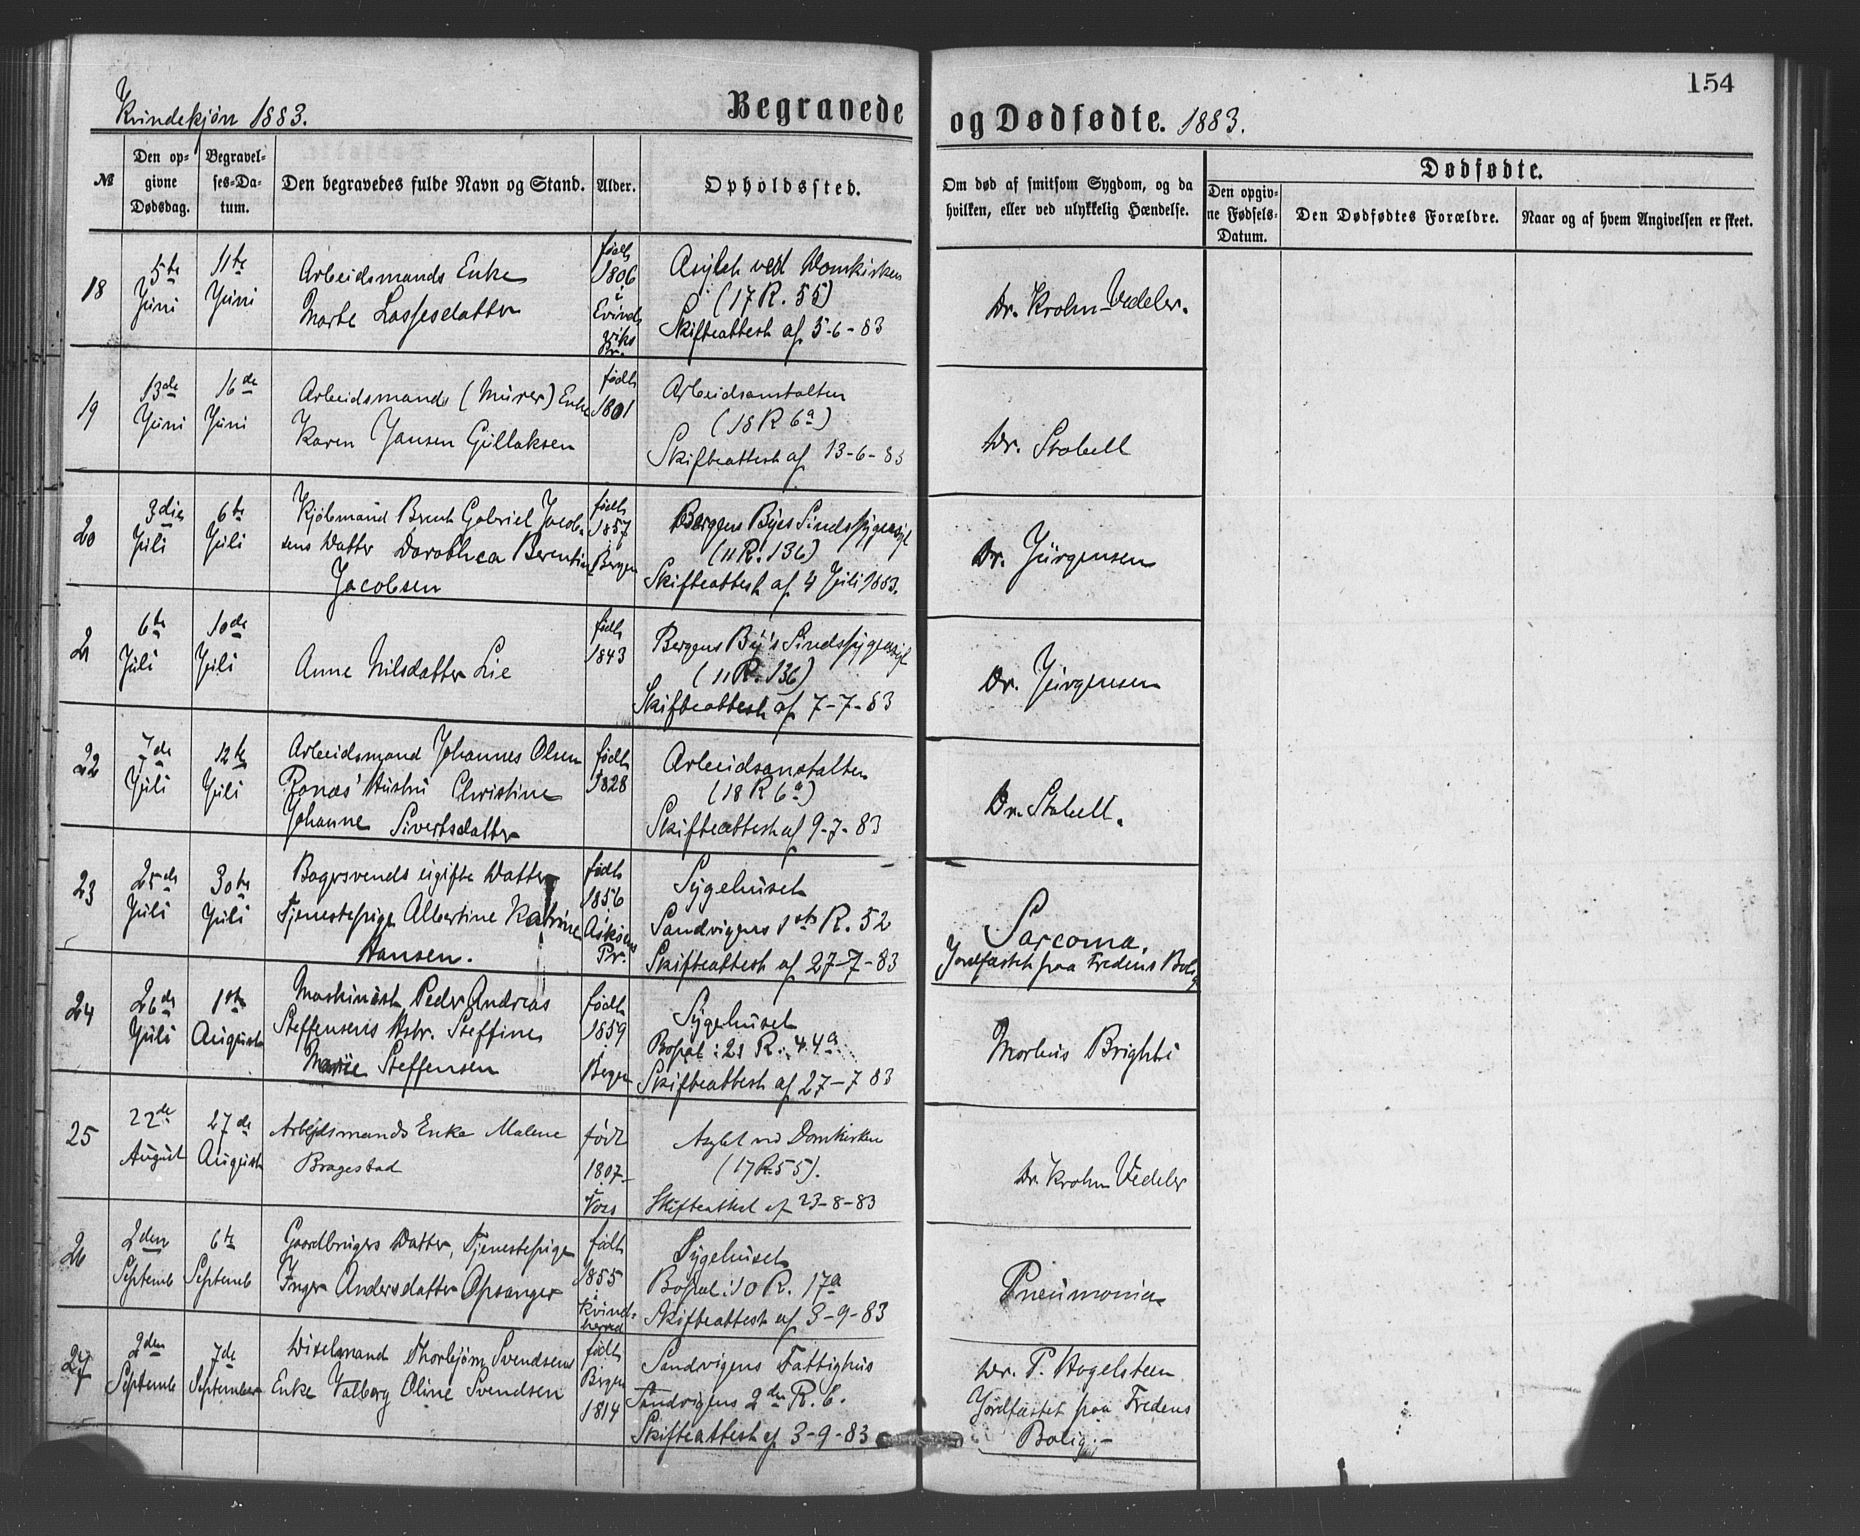 154
Kvindekjøn 1883.
Begravede og Dødfødte. 1883.
№
Den opgivne Dødsdag.
Begravelses-Datum.
Den begravedes fulde Navn og Stand.
Alder.
Opholdssted.
Om død af smitsom Sygdom, og da hvilken, eller ved ulykkelig Hændelse.
Dødfødte.
Den opgivne Fødsels-Datum.
Den Dødfødtes Forældre.
Naar og af hvem Angivelsen er skeet.
18
5te Juni
11te Juni
Arbeidsmands Enke
Marte Lassesdatter
født
1806
i
Evinds
viks
Pr.
Asylet ved Domkirken
(17 R. 55)
Skifteattest af 5-6-83
Dr. Krohn-Vedeler.
19
13de Juni
16de Juni
Arbeidsmands (Murer) Enke
Karen Jansen Gullaksen
født
1801
Arbeidsanstalten
(18 R 6a)
Skifteattest af 13-6-83
Dr. Stabell
20
3die Juli
6te Juli
Kjøbmand Brent Gabriel Jacob-
sens Datter Dorothea Berentine
Jacobsen
født
1857
Bergen
Bergens Byes Sindssygeasyl
(11 R. 136)
Skifteattest af 4 Juli 1883.
Dr. Jürgensen
21
6te Juli
10de Juli
Anne Nilsdatter Lie
født
1843
Bergens By's Sindssygeasyl
(11 R. 136)
Skifteattest af 7-7-83
Dr. Jürgensen
22
7de Juli
12te Juli
Arbeidsmand Johannes Olsen
Ronæs' Hustru Christine
Johanne Sivertsdatter
født
1828
Arbeidsanstalten
(18 R 6a)
Skifteattest af 9-7-83
Dr. Stabell.
23
25de Juli
30te Juli
Bagersvends ugifte Datter
Tjenestepige Albertine Katrine
Hansen.
født
1856
Askøens
Pr.
Sygehuset
Sandvigens 1ste R. 52
Skifteattest af 27-7-83
Sarcoma.
Jordfæstet paa Fredens Bolig
24
26de Juli
1ste August
Maskinist Peder Andreas
Steffensens Hstr. Steffine
Marie Steffensen
født
1859
i
Bergen
Sygehuset
Bopæl: 21 R. 44a
Skifteattest af 27-7 83
Morbus Brighti
25
22de August
27de August
Arbejdsmands Enke Malene
Bragestad
født
1807
i
Voss
Asylet ved Domkirken
(17 R. 55).
Skifteattest af 23-8-83
Dr. Krohn Vedeler
26
2den Septemb
6te Septemb
Gaardbrugers Datter, Tjenestepige
Inger Andersdatter Opsanger
født
1855
i
Kvind-
herred
Sygehuset
Bopæl: 10 R. 17a
Skifteattest af 3-9-83
Pneumonia
27
2den Septemb
7de September
Dixelmand Thorbjørn Svendsens
Enke Valborg Oline Svendsen
født
Bergen
1814
Sandvigens Fattighus
Sandvigens 2den R. 6.
Skifteattest af 3-9-83
Dr. P. Hagelsteen
Jordfæstet paa Fredens
Bolig.-